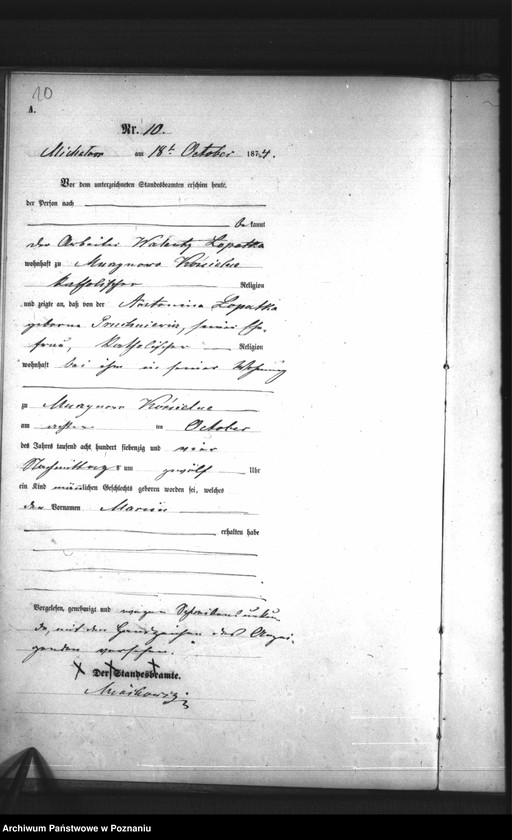 10
A.
Nr. 10.
am 18t October 1874.
Vor dem unterzeichneten Standesbeamten erschien heute,
der Person nach
bekannt
der Arbeiter Walenty Łopatka
wohnhaft zu Murzynowo Kościelne
katholischer Religion
und zeigte an, daß von der Antonina Łopatka
geborene seiner Ehe-
frau, katholischer Religion
wohnhaft bei ihm in seiner Wohnung
zu Murzynowo Kościelne
am im October
des Jahres tausend acht hundert siebenzig und vier
Nachmittags um zwölf Uhr
ein Kind männlichen Geschlechts geboren worden sei, welches
den Vornamen Marcin
erhalten habe
Vorgelesen, genehmigt und wegen Schreibensunkun-
de, mit den Handzeichen des Anzei-
genden versehen.
XXX
Der Standesbeamte.
Archiwum Państwowe w Poznaniu